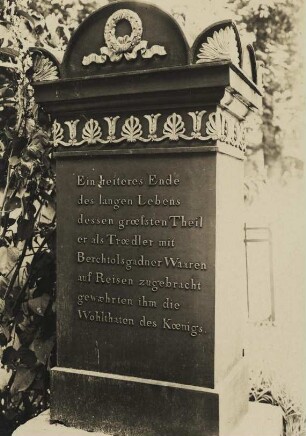 Ein heiteres Ende
des langen Lebens
dessen grœfsten Theil
er als Trœdler mit
Berchtolsgadner Waaren
auf Reisen zugebracht
gewæhrten ihm die
Wohlthaten des Kœnigs.